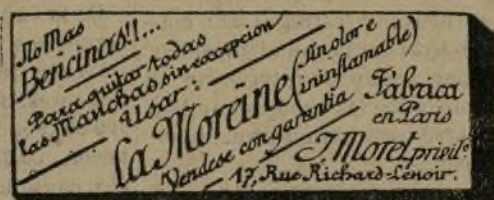 No Mas
Bencinas!!...
Para quitar todas
las Manchas sin excepcion
Usar:
La Moreine (sin olor e
ininflamable)
Vendese con garantia
Fábrica
en Paris
J. Moret privilº
17, Rue Richard-Lenoir.